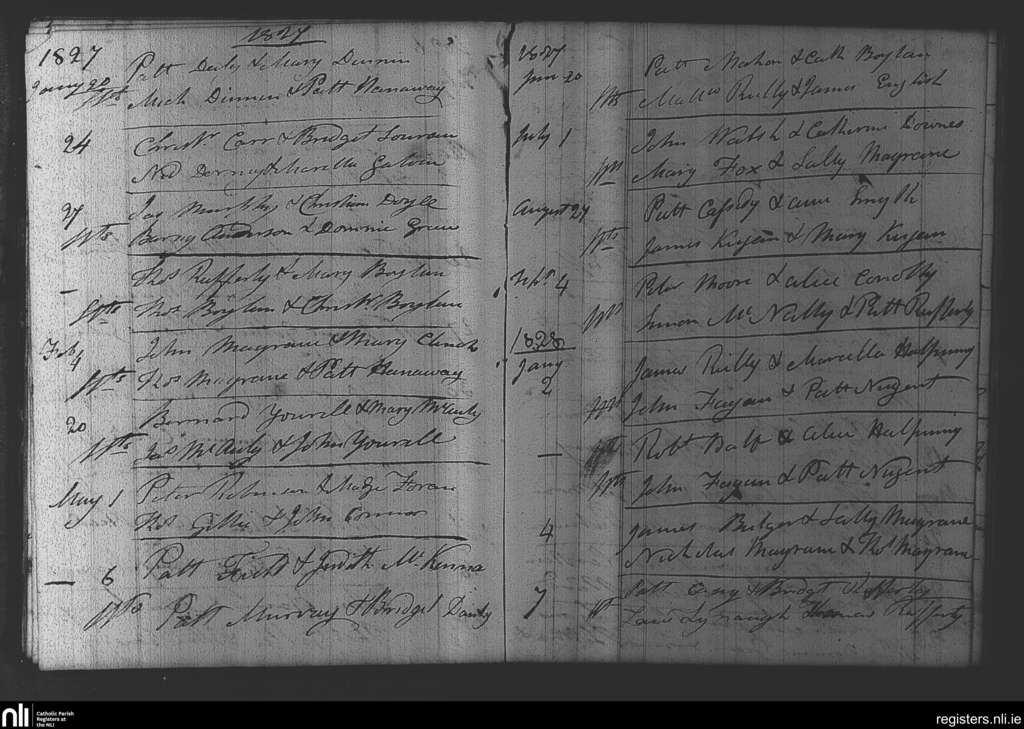 1827
1827
Jany 20 Patt Daly & Mary Dinnin
Wts Mich Dinnin & Patt Hanaway
24 Christr. Carr & Bridget
Ned & Marcella Galvin
27 Jas Murphy & Christian Doyle
Wts Barny Anderson & Dominic Green
— Thos Rafferty & Mary Boylan
Wts Thos Boylan & Christr. Boylan
Feb 4 John Magrane & Mary Clinch
Wts Thos Magrane & Patt Hanaway
20 Bernard Yourell & Mary McAuly
Wts Jas McAuly & John Yourell
May 1 Peter & Madge Foran
Thos & John Connor
— 6 Patt Field & Judith Mc Kenna
Wts Patt Murray & Bridget Dardy
1827
Jun 20 Patt Mahon & Cath Boylan
Wts Mattw Reilly & James English
July 1 John Walsh & Catherine Downes
Wts Mary Fox & Sally Magrane
August 27 Patt Cassidy & Smyth
Wts James Kegan & Mary Kegan
Sepr. 4 Peter Moore & Alice Conolly
Wts Simon Mc Nally & Patt Rafferty
1828
Jany 2 James Reilly & Marcella Halpinny
Wts John Fagan & Patt Nugent
— Robt Balf & Alice Halpinny
Wts John Fagan & Patt Nugent
4 James & Sally Magrane
Nicholas Magrane & Thos Magrane
7 Patt & Bridgt
Wt Thomas Rafferty
nli
Catholic Parish
Registers at
the NLI
registers.nli.ie